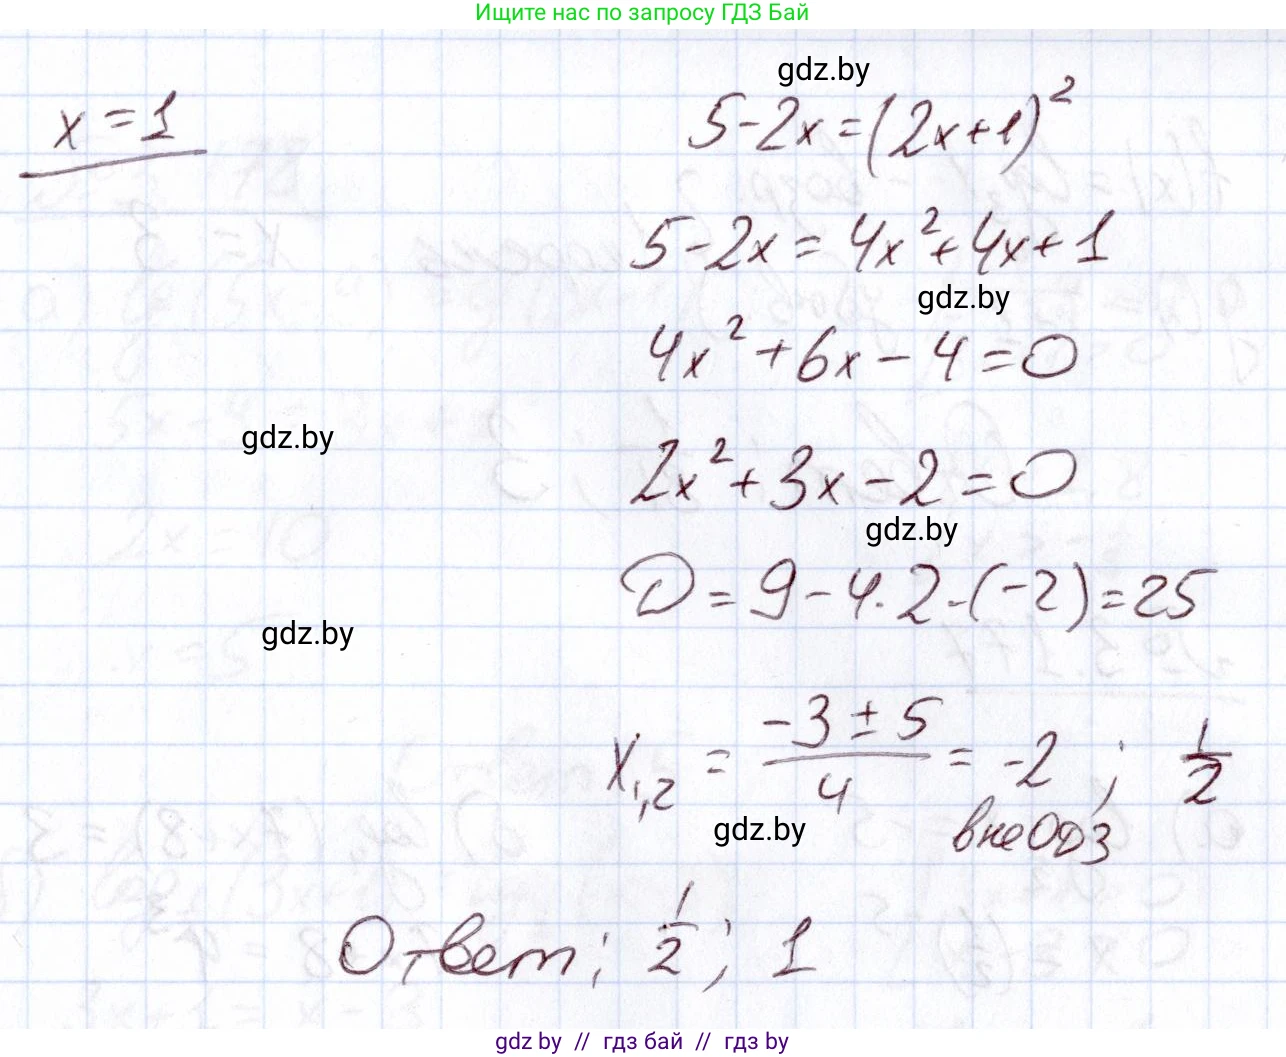 Ищите нас по запросу ГДЗ Бай
gdz.by
x = 1
5 - 2x = (2x + 1)²
5 - 2x = 4x² + 4x + 1
gdz.by
4x² + 6x - 4 = 0
gdz.by
2x² + 3x - 2 = 0
gdz.by
D = 9 - 4 · 2 · (-2) = 25
gdz.by
x₁,₂ = (-3 ± 5)/4 = -2 ; 1/2
gdz.by
вне ОДЗ
Ответ: 1/2 ; 1
gdz by // гдз бай // гдз by